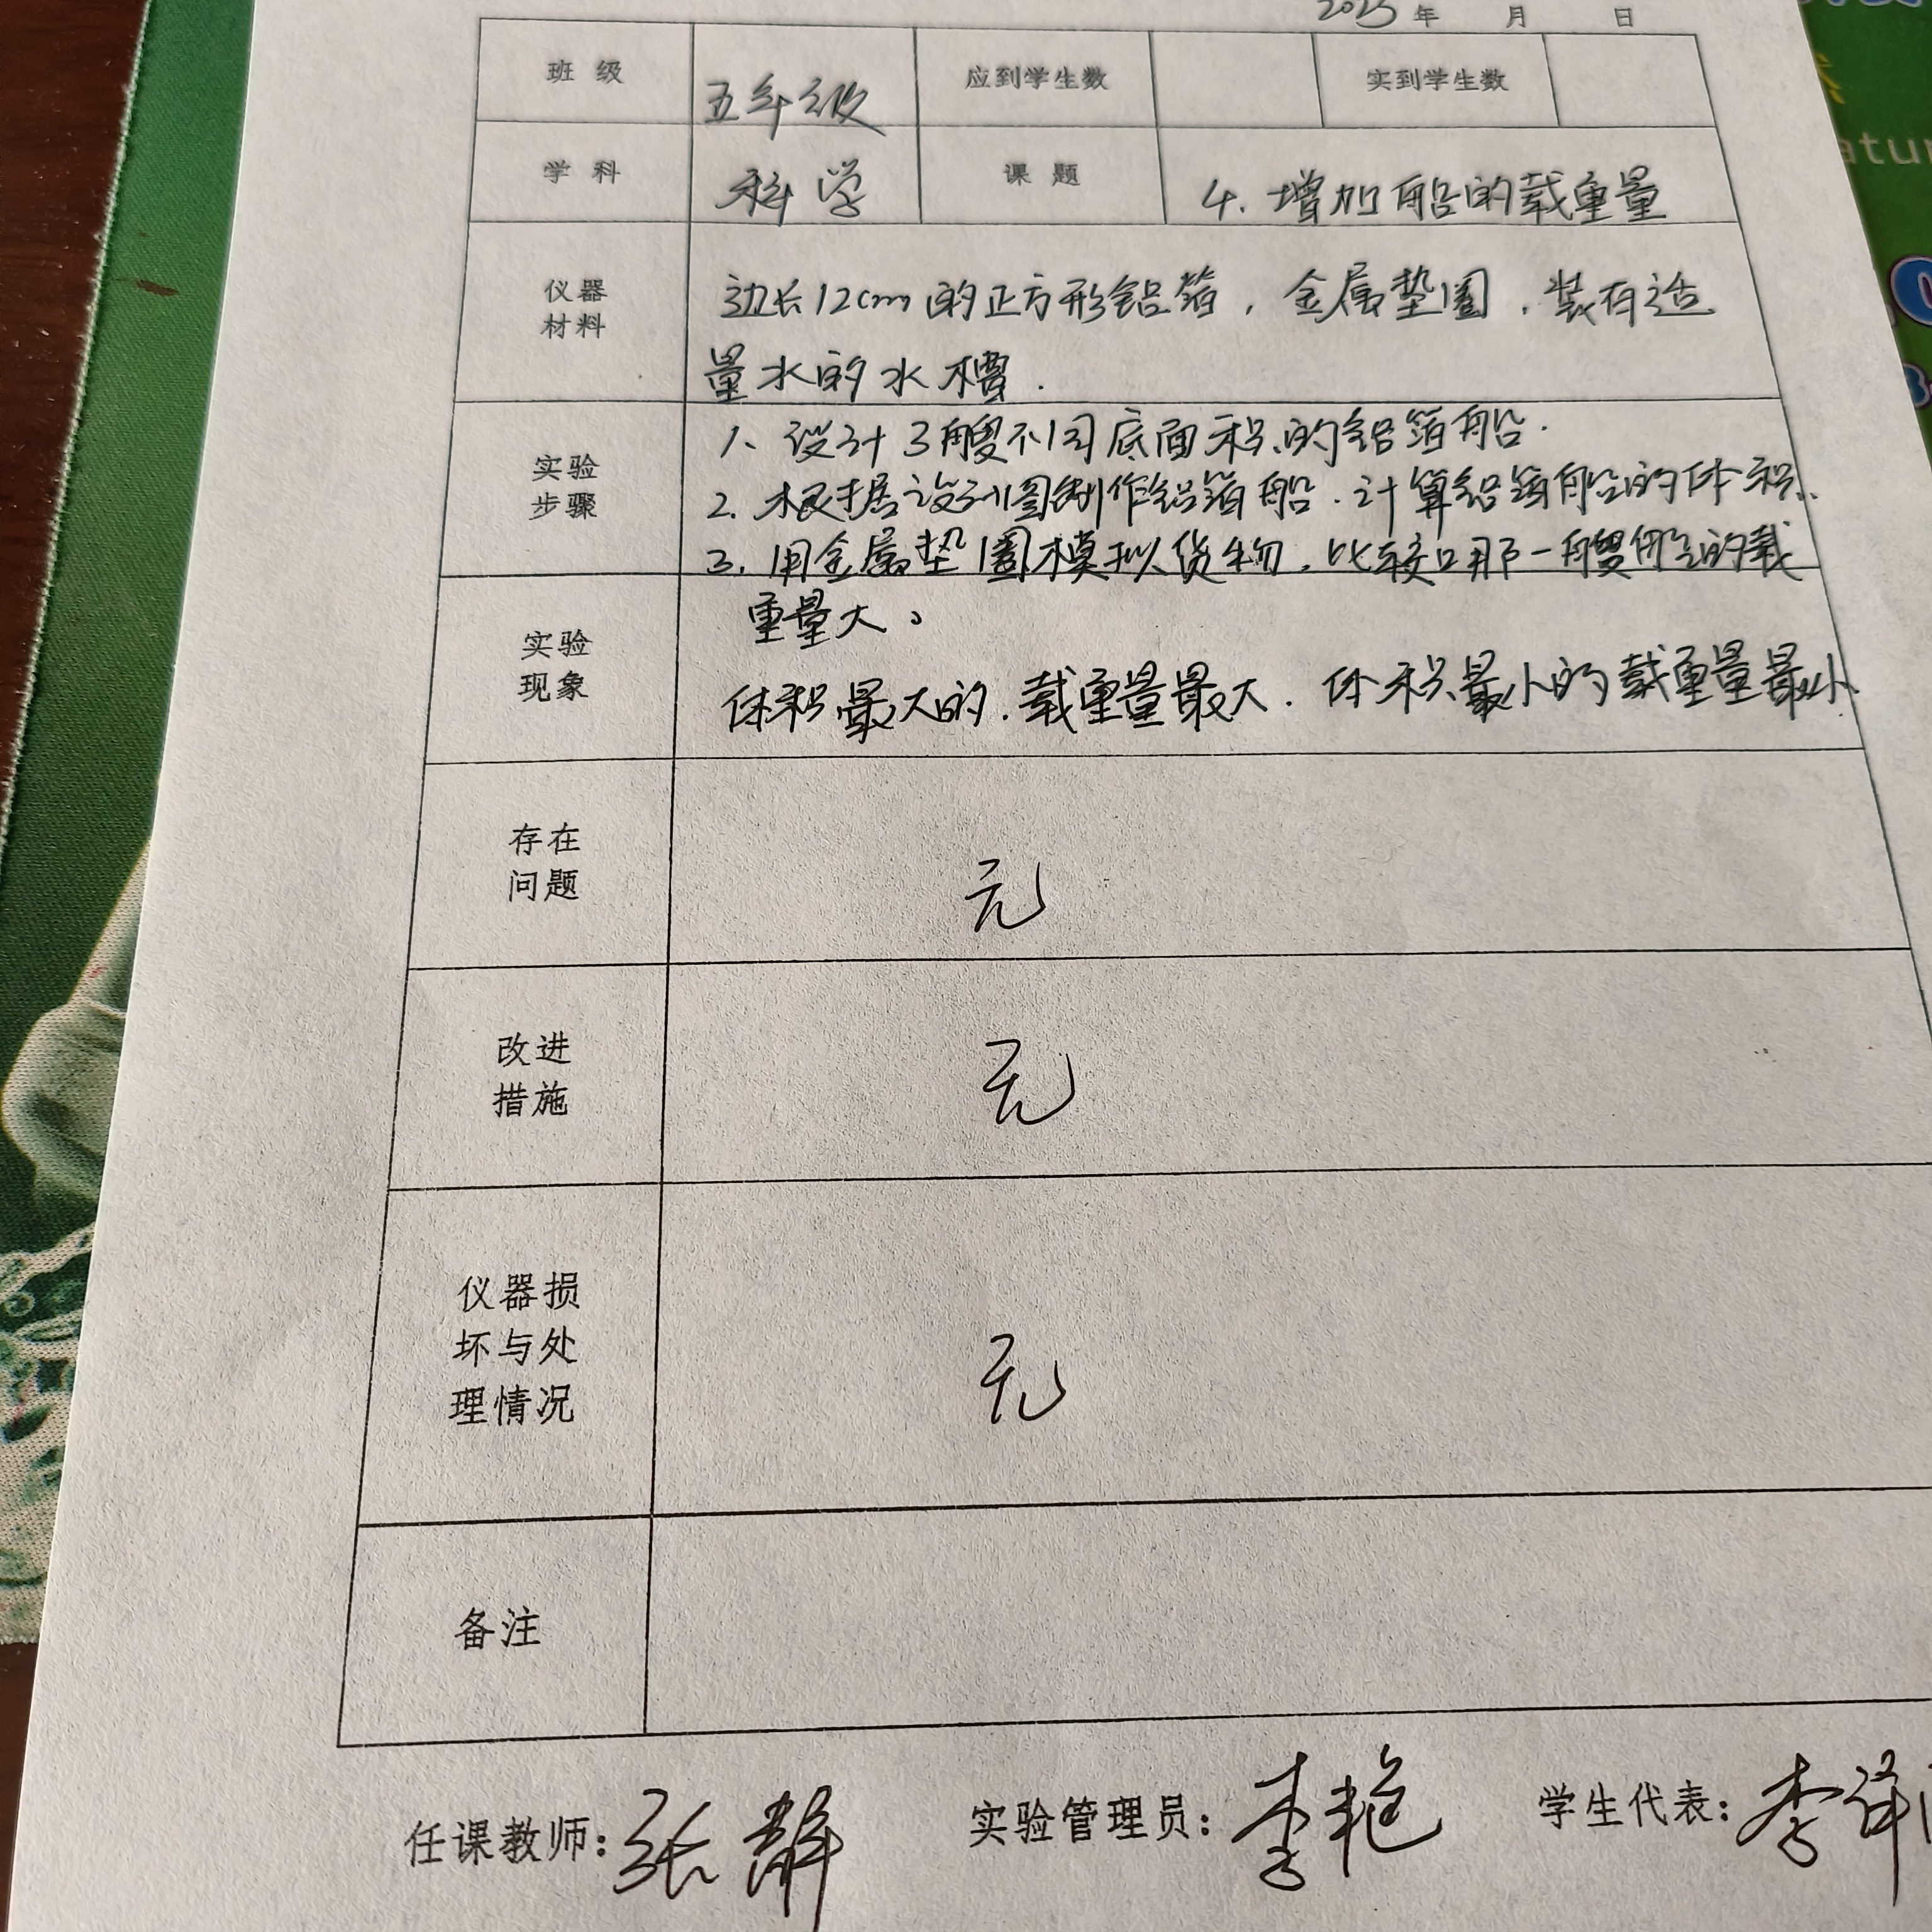 2025 年 月 日
班 级 五年级 应到学生数 实到学生数
学 科 科学 课 题 4. 增加船的载重量
仪器
材料
边长12cm的正方形铝箔，金属垫圈，装有适
量水的水槽.
实验
步骤
1、设计3艘不同底面积的铝箔船.
2. 根据设计图制作铝箔船.计算铝箔船的体积.
3. 用金属垫圈模拟货物，比较哪一艘船的载
重量大。
实验
现象
体积最大的.载重量最大.体积最小的载重量最小
存在
问题
无
改进
措施
无
仪器损
坏与处
理情况
无
备注
任课教师：张静 实验管理员：李艳 学生代表：李
atur